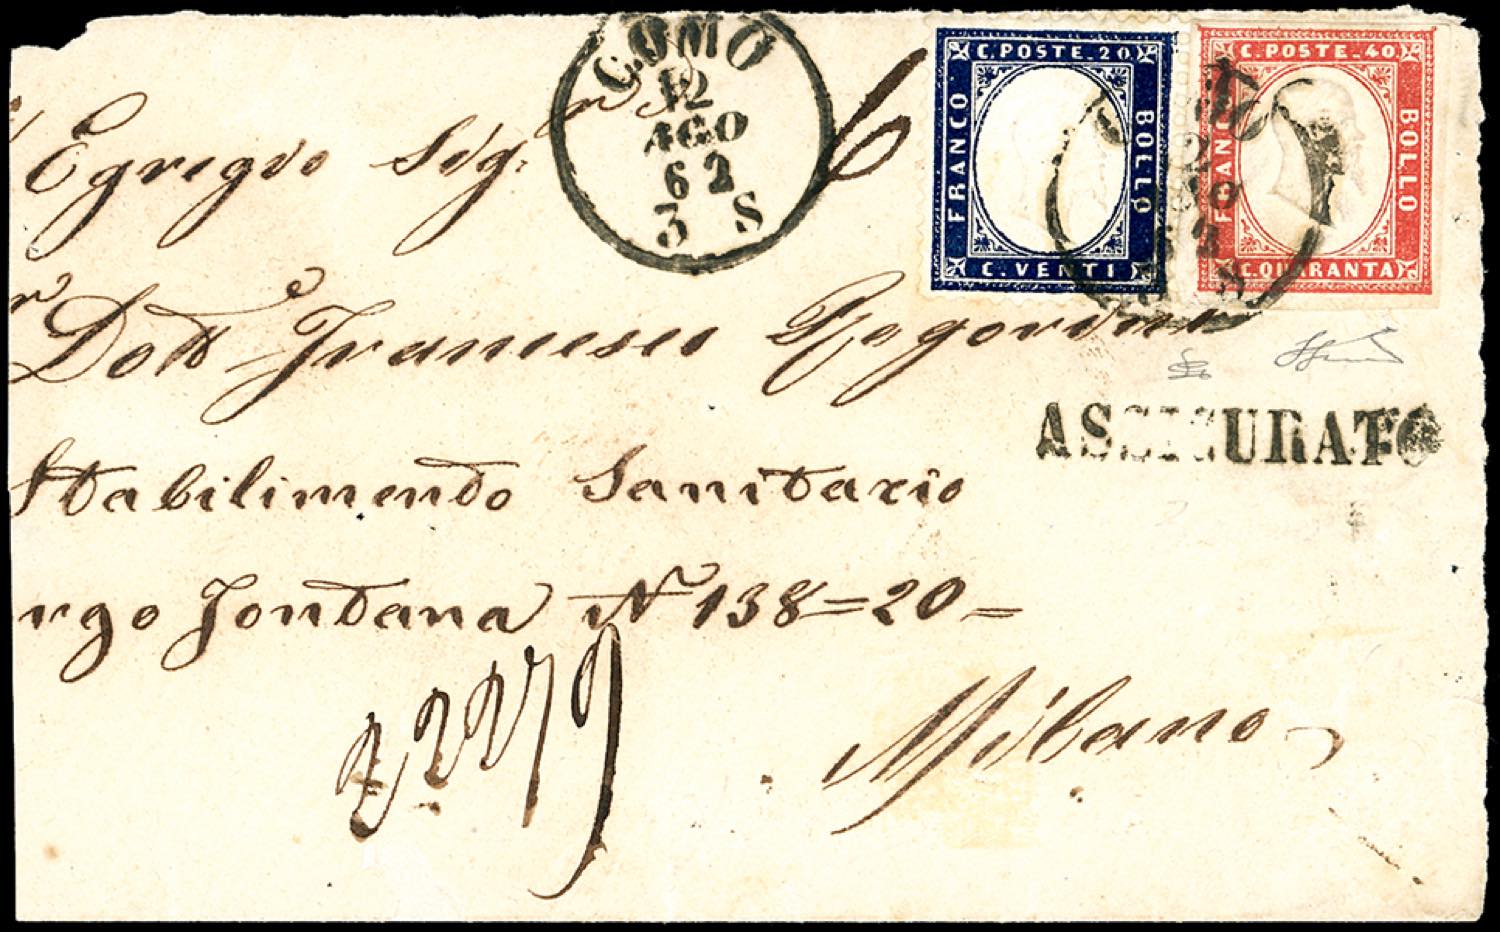 COMO
12
AGO
62
3 S
6
C. POSTE. 20
FRANCO
BOLLO
C. VENTI
C. POSTE. 40
FRANCO
BOLLO
C. QUARANTA
Egregio Sigr
Dott Francesco
ASSICURATO
Stabilimento Sanitario
Fontana No 138=20=
Milano